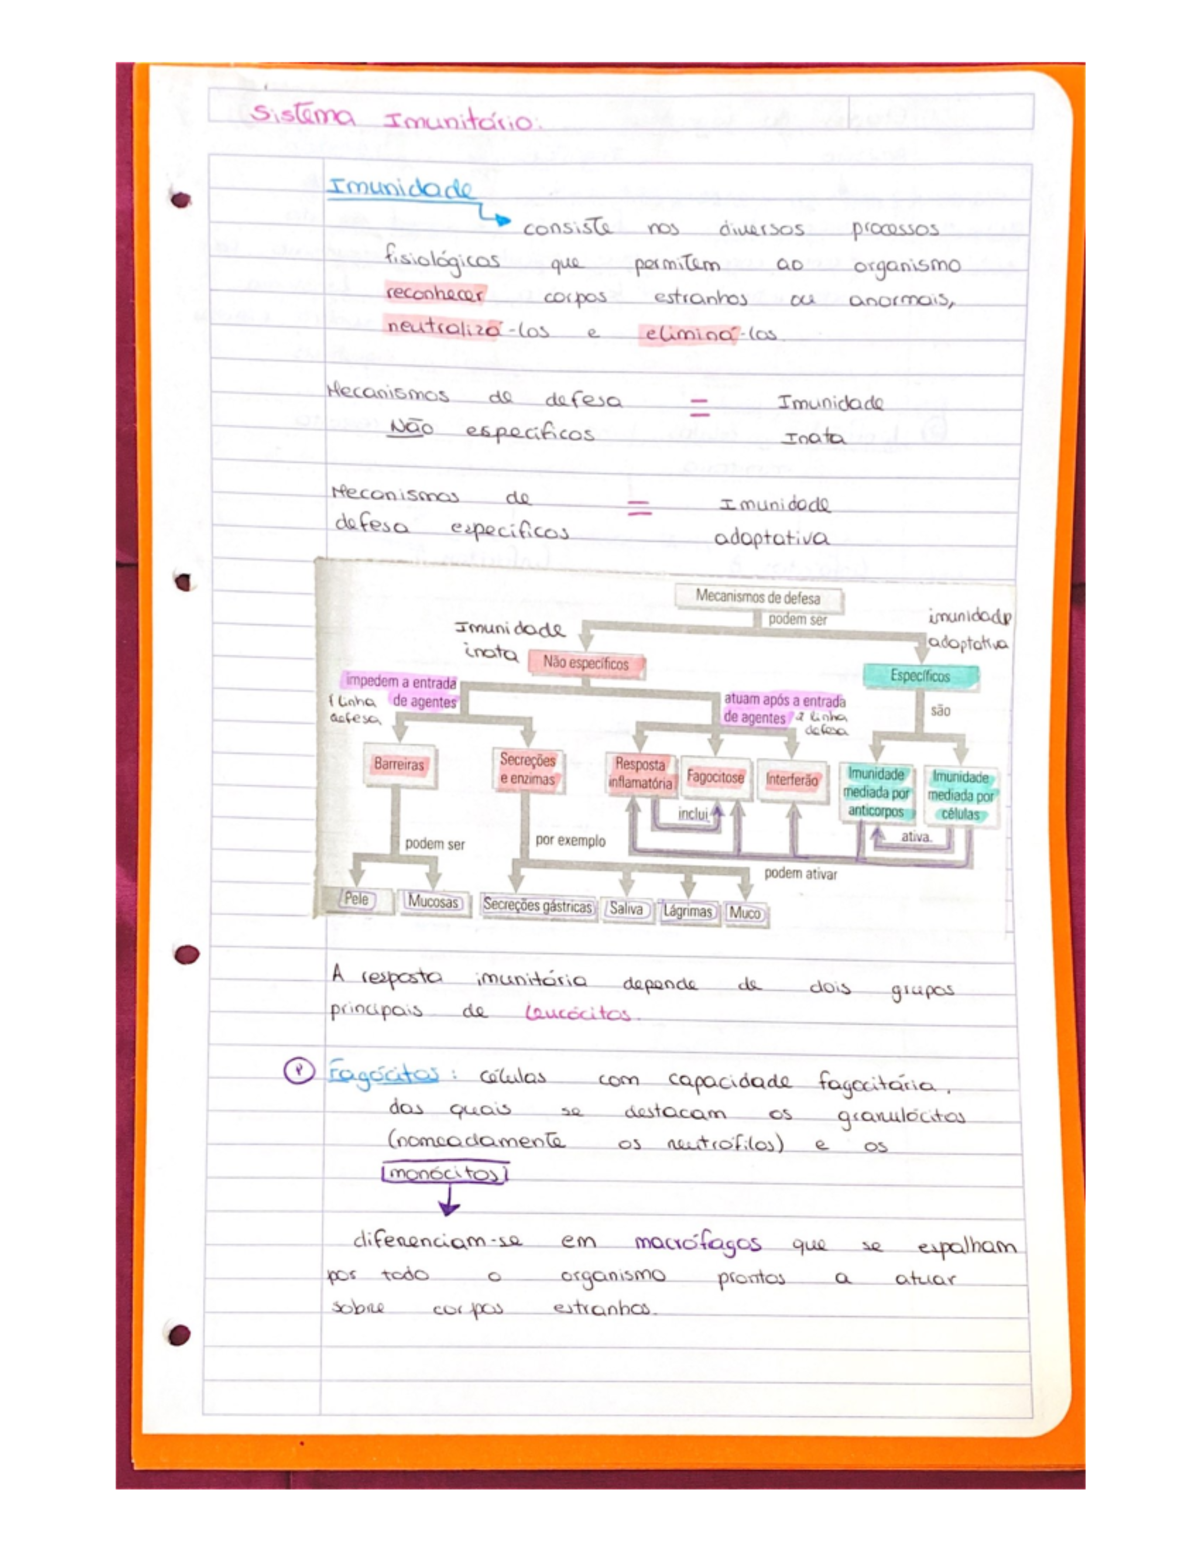 Sistema Imunitário.
Imunidade
consiste nos diversos processos
fisiológicos que permitem ao organismo
reconhecer corpos estranhos ou anormais,
neutralizá-los e eliminá-los
Mecanismos de defesa = Imunidade
Não específicos Inata
Mecanismos de = Imunidade
defesa específicos adaptativa
Mecanismos de defesa
podem ser
Imunidade
inata
imunidade
adaptativa
Não específicos
Específicos
impedem a entrada
de agentes
1 linha
defesa
atuam após a entrada
de agentes 2 linha
defesa
são
Barreiras
Secreções
e enzimas
Resposta
inflamatória
Fagocitose
Interferão
Imunidade
mediada por
anticorpos
Imunidade
mediada por
células
inclui
ativa.
podem ser
por exemplo
podem ativar
Pele
Mucosas
Secreções gástricas
Saliva
Lágrimas
Muco
A resposta imunitária depende de dois grupos
principais de leucócitos.
Fagócitos: células com capacidade fagocitária,
das quais se destacam os granulócitos
(nomeadamente os neutrófilos) e os
monócitos
diferenciam-se em macrófagos que se espalham
por todo o organismo prontos a atuar
sobre corpos estranhos.